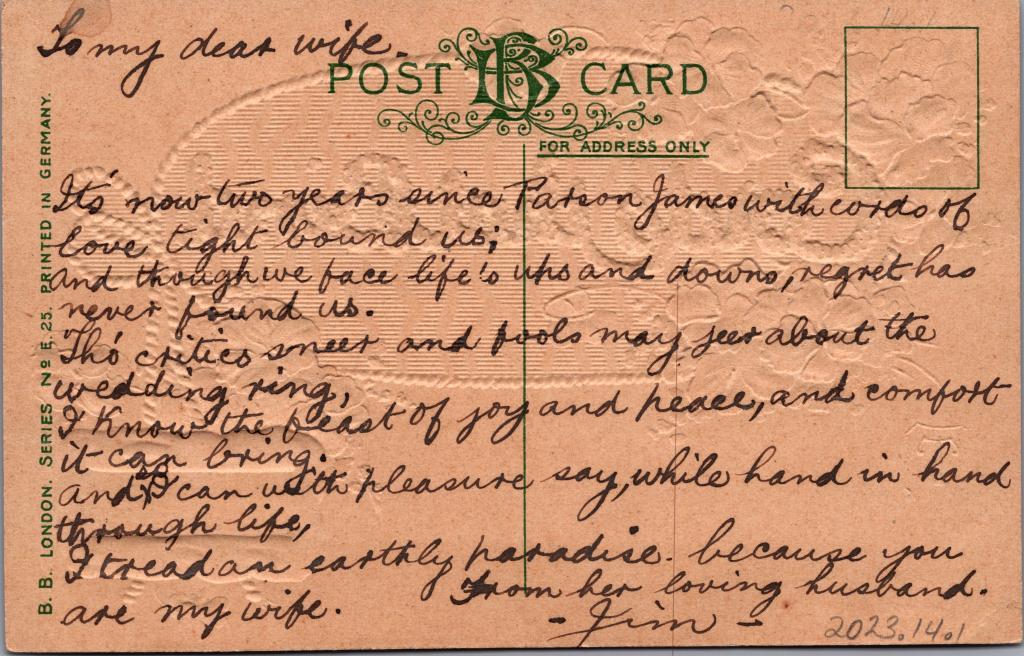 To my dear wife.
POST BB CARD
FOR ADDRESS ONLY
It's now two years since Parson James with cords of
love tight bound us;
and though we face life's ups and downs, regret has
never found us.
Tho' critics sneer and fools may jeer about the
wedding ring,
I know the feast of joy and peace, and comfort
it can bring.
and I can with pleasure say, while hand in hand
through life,
I tread an earthly paradise. because you
are my wife.
From her loving husband.
- Jim -
2023.14.1
B. B. LONDON. SERIES No E.25. PRINTED IN GERMANY.